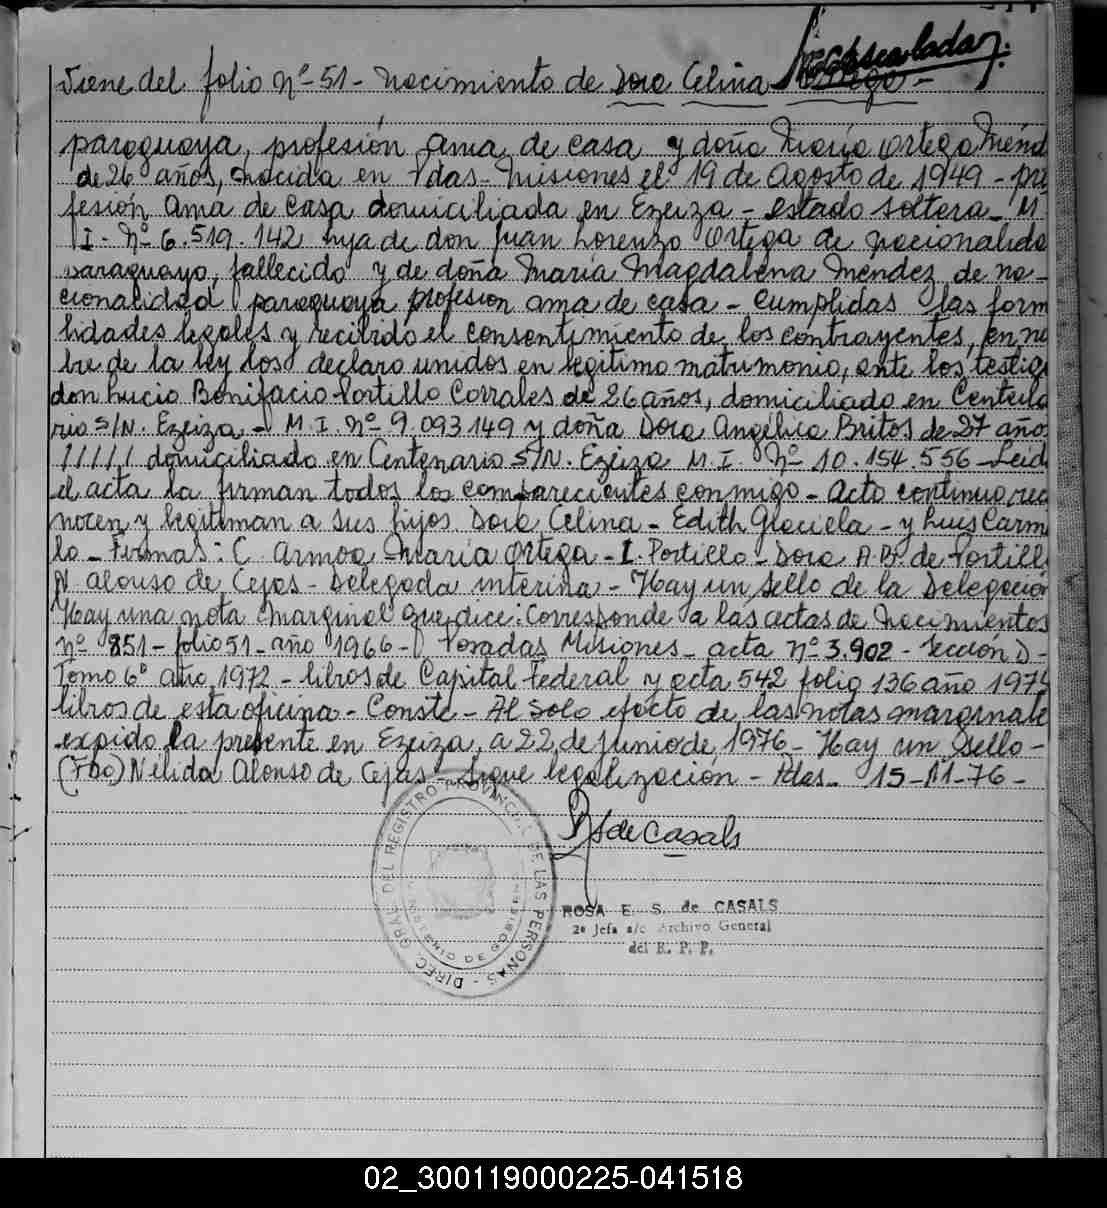 Viene del folio nº 51 - Nacimiento de Dora Celina Ortega -
paraguaya, profesión ama de casa y doña María Ortega Ménd
de 26 años, nacida en Pdas - Misiones el 19 de Agosto de 1949 - pro
fesión ama de casa domiciliada en Ezeiza - estado soltera - M
I. Nº 6.519.142 hija de don Juan Lorenzo Ortega de nacionalida
paraguayo, fallecido y de doña María Magdalena Méndez de na-
cionalidad paraguaya profesión ama de casa - Cumplidas las form
lidades legales y recibido el consentimiento de los contrayentes, en no
bre de la ley los declaro unidos en legítimo matrimonio, ante los testig
don Lucio Bonifacio Portillo Corrales de 26 años, domiciliado en Centena
rio S/N. Ezeiza - M.I. nº 9.093.149 y doña Dora Angélica Britos de 27 año
///// domiciliado en Centenario S/N. Ezeiza M.I. Nº 10.154.556 - Leid
el acta la firman todos los comparecientes conmigo - Acto continuo, rec
nocen y legitiman a sus hijos Dora Celina - Edith Graciela - y Luis Carm
lo - Firmas: C. Armoa - María Ortega - L. Portillo - Dora A. B. de Portill
N. Alonso de Cejas - Delegada interina - Hay un sello de la Delegación
Hay una nota marginal que dice: Corresponde a las actas de Nacimientos
nº 851 - folio 51 - año 1966 - Posadas Misiones - acta nº 3.902 - Sección D -
Tomo 6º año 1972 - libros de Capital Federal y acta 542 folio 136 año 1974
libros de esta oficina - Conste - Al solo efecto de las notas marginale
expido la presente en Ezeiza, a 22 de junio de 1976 - Hay un sello -
(Fdo) Nélida Alonso de Cejas - Sigue legalización - Pdas. 15-11-76 -
de Casals
DIREC. GRAL. DEL REGISTRO PROVINCIAL DE LAS PERSONAS
ROSA E. S. de CASALS
2ª Jefa a/c Archivo General
del R. P. P.
02_300119000225-041518